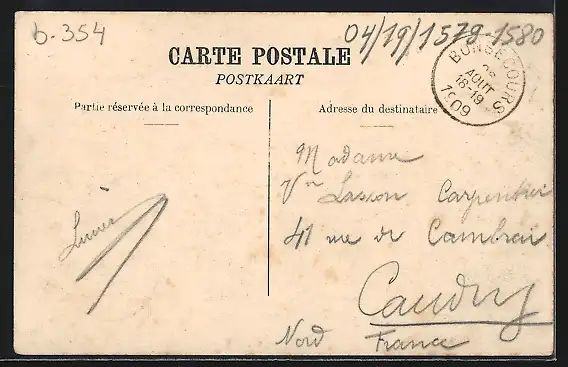 b-354
04/19/1579-1580
CARTE POSTALE
POSTKAART
BONSECOURS
AOUT
18-19
1909
Partie réservée à la correspondance
Adresse du destinataire
Madame
Vve Lasson Carpentier
41 rue de Cambrai
Caudry
Nord France
Lucien